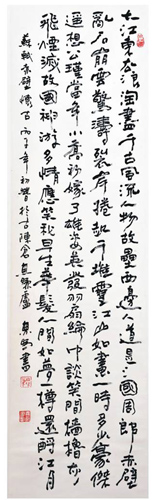 大江東去浪淘盡千古風流人物故壘西邊人道是三國周郎赤壁
亂石崩雲驚濤裂岸捲起千堆雪江山如畫一時多少豪傑
遙想公瑾當年小喬初嫁了雄姿英發羽扇綸巾談笑間檣櫓灰
飛煙滅故國神游多情應笑我早生華髮人間如夢一樽還酹江月
蘇軾赤壁懷古 丙子年初 於古陳倉 書